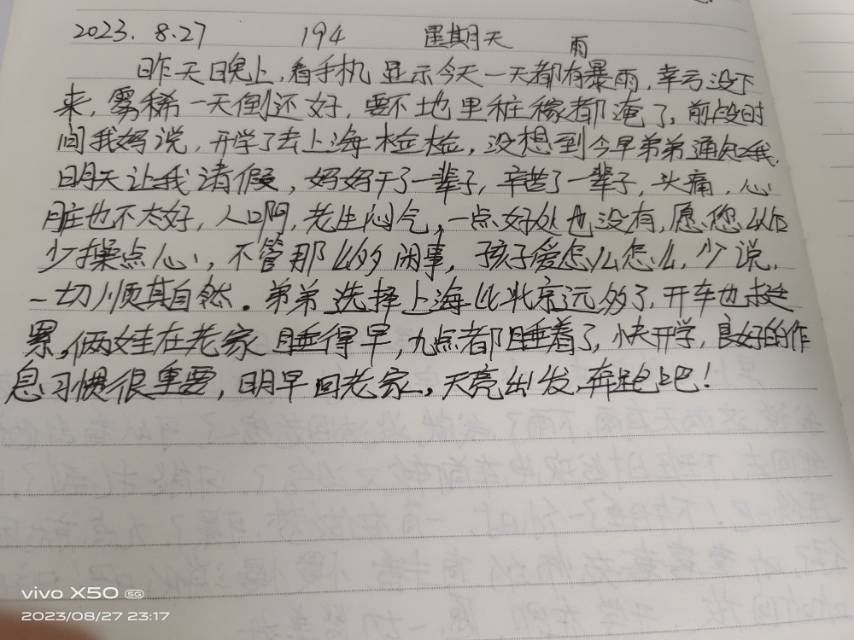 2023. 8.27 194 星期天 雨
昨天晚上,看手机显示今天一天都有暴雨,幸亏没下
来,雾稀一天倒还好,要不地里桩稼都淹了,前段时
间我妈说,开学了去上海检检,没想到今早弟弟通知我,
明天让我请假,妈妈干了一辈子,辛苦了一辈子,头痛,心
脏也不太好,人口啊,光生闷气,一点好处也没有,愿您以后
少操点心,不管那么多闲事,孩子爱怎么怎么,少说,
一切顺其自然。弟弟选择上海比北京远多了,开车也挺
累,俩娃在老家睡得早,九点都睡着了,快开学,良好的作
息习惯很重要,明早回老家,天亮出发,奔跑吧!
vivo X50 5G
2023/08/27 23:17